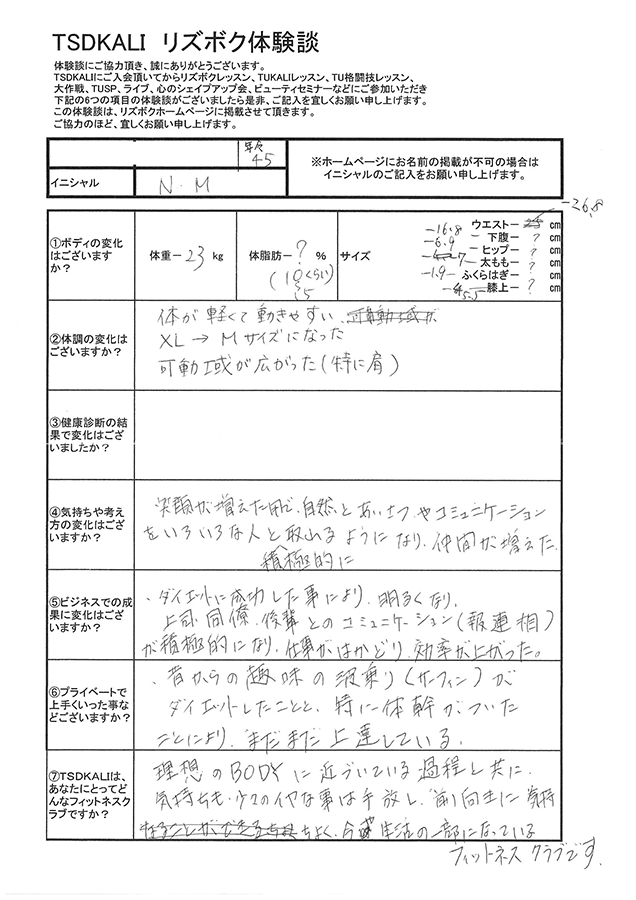 TSDKALI リズボク体験談
体験談にご協力頂き、誠にありがとうございます。
TSDKALIにご入会頂いてからリズボクレッスン、TUKALIレッスン、TU格闘技レッスン、
大作戦、TUSP、ライブ、心のシェイプアップ会、ビューティセミナーなどにご参加いただき
下記の6つの項目の体験談がございましたら是非、ご記入を宜しくお願い申し上げます。
この体験談は、リズボクホームページに掲載させて頂きます。
ご協力のほど、宜しくお願い申し上げます。
45
※ホームページにお名前の掲載が不可の場合は
イニシャルのご記入をお願い申し上げます。
イニシャル N.M
①ボディの変化
はございます
か？
体重－23kg
体脂肪－？％
(10くらい)
15
サイズ
-26.8
-16.8 ウエスト－ cm
-6.9 下腹－？cm
ヒップ－？cm
太もも－？cm
-1.9 ふくらはぎ－？cm
膝上－？cm
②体調の変化は
ございますか？
体が軽くて動きやすい、可動域が
XL→Mサイズになった
可動域が広がった(特に肩)
③健康診断の結
果で変化はござ
いましたか？
④気持ちや考え
方の変化はござ
いますか？
笑顔が増えた用で、自然とあいさつやコミュニケーション
をいろいろな人と取れるようになり、仲間が増えた。
積極的に
⑤ビジネスでの成
果に変化はござ
いますか？
・ダイエットに成功した事により、明るくなり、
上司、同僚、後輩とのコミュニケーション(報連相)
が積極的になり、仕事がはかどり、効率が上がった。
⑥プライベートで
上手くいった事な
どございますか？
・昔からの趣味の波乗り(サーフィン)が
ダイエットしたことと、特に体幹がついた
ことにより、まだまだ上達している。
⑦TSDKALIは、
あなたにとってど
んなフィットネスク
ラブですか？
理想のBODYに近づいている過程と共に、
気持ちも イヤな事は手放し、前向きに 気持
ちよく、今 生活の一部になっている
フィットネスクラブです。